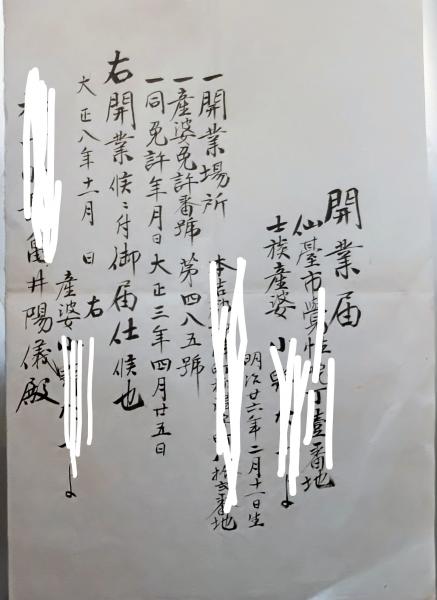 開業届
仙臺市 丁壹番地
士族産婆 小
明治廿六年二月十一日生
一開業場所 本 番地
一産婆免許番號 第四八五號
一同免許年月日 大正三年四月廿五日
右開業候ニ付御届仕候也
大正八年十一月 日
右
産婆 小
亀井陽儀殿